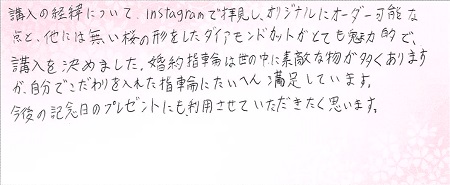 購入の経緯について、instagramで拝見し、オリジナルにオーダー可能な
点と、他には無い桜の形をしたダイアモンドカットがとても魅力的で、
購入を決めました。婚約指輪は世の中に素敵な物が多くあります
が、自分でこだわりを入れた指輪にたいへん満足しています。
今後の記念日のプレゼントにも、利用させていただきたく思います。